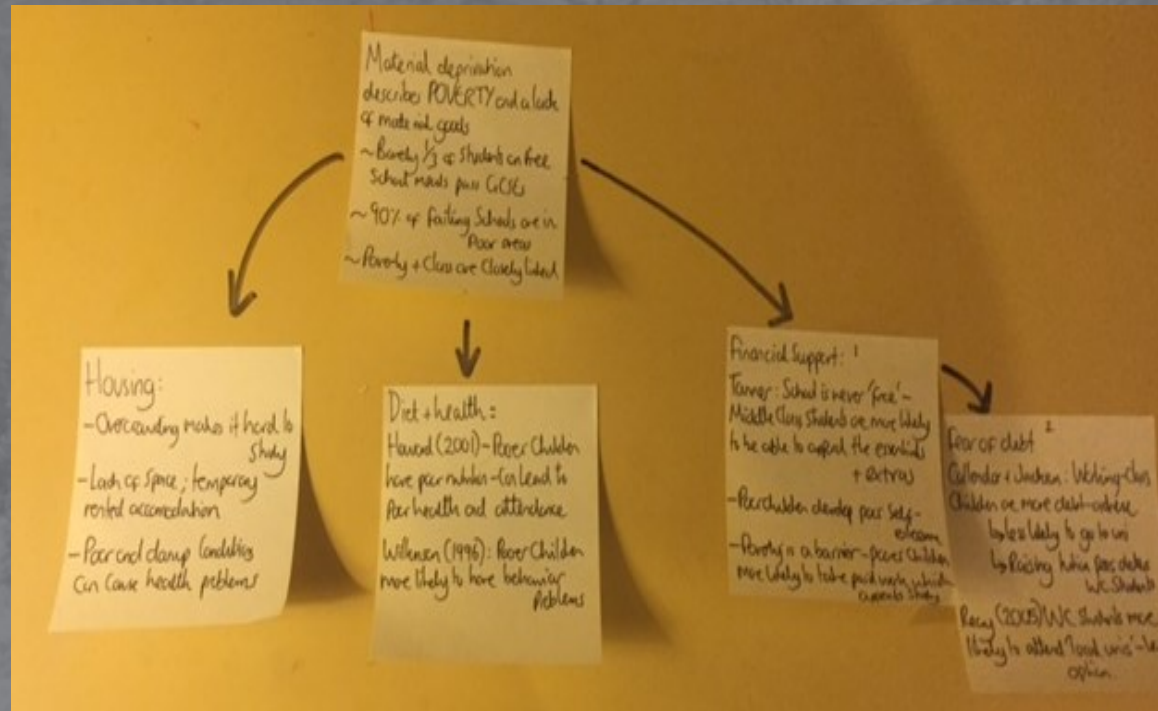 Material deprivation
describes POVERTY and a lack
of material goods
~ Barely 1/3 of students on free
School meals pass GCSEs
~ 90% of failing Schools are in
Poor areas
~ Poverty + Class are Closely linked
Housing:
- Overcrowding makes it hard to
Study
- Lack of Space; temporary
rented accomodation
- Poor and damp Conditions
Can Cause health problems
Diet + health:
Howard (2001) - Poorer Children
have poor nutrition - Can lead to
Poor health and attendance
Wilkinson (1996): Poorer Children
more likely to have behavior
Problems
Financial Support: 1
Tanner: School is never 'free' -
Middle Class Students are more likely
to be able to afford the essentials
+ extras
- Poor children develop poor Self-
esteem
- Poverty is a barrier - poorer Children
more likely to take paid work, which
Study
Fear of debt 2
Callendar + Jackson: Working-Class
Children are more debt-adverse
↳ less likely to go to uni
↳ Raising tuition fees
WC Students
Reay (2005) WC Students more
likely to attend 'local unis' -
option.